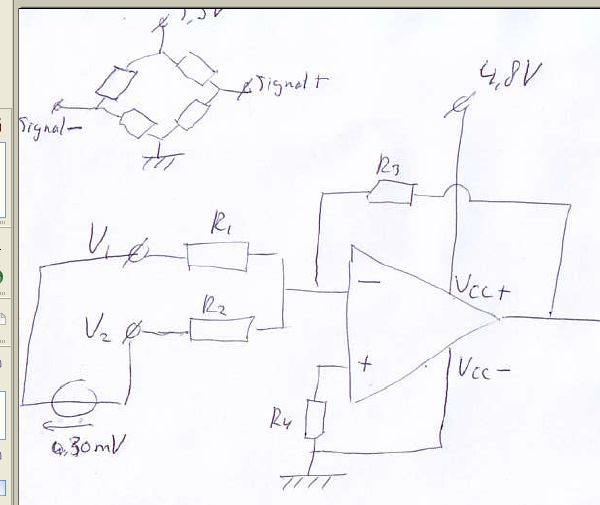 Signal+
Signal-
4,8V
R3
V1
R1
Vcc+
V2
R2
+
Vcc-
R4
0,30mV